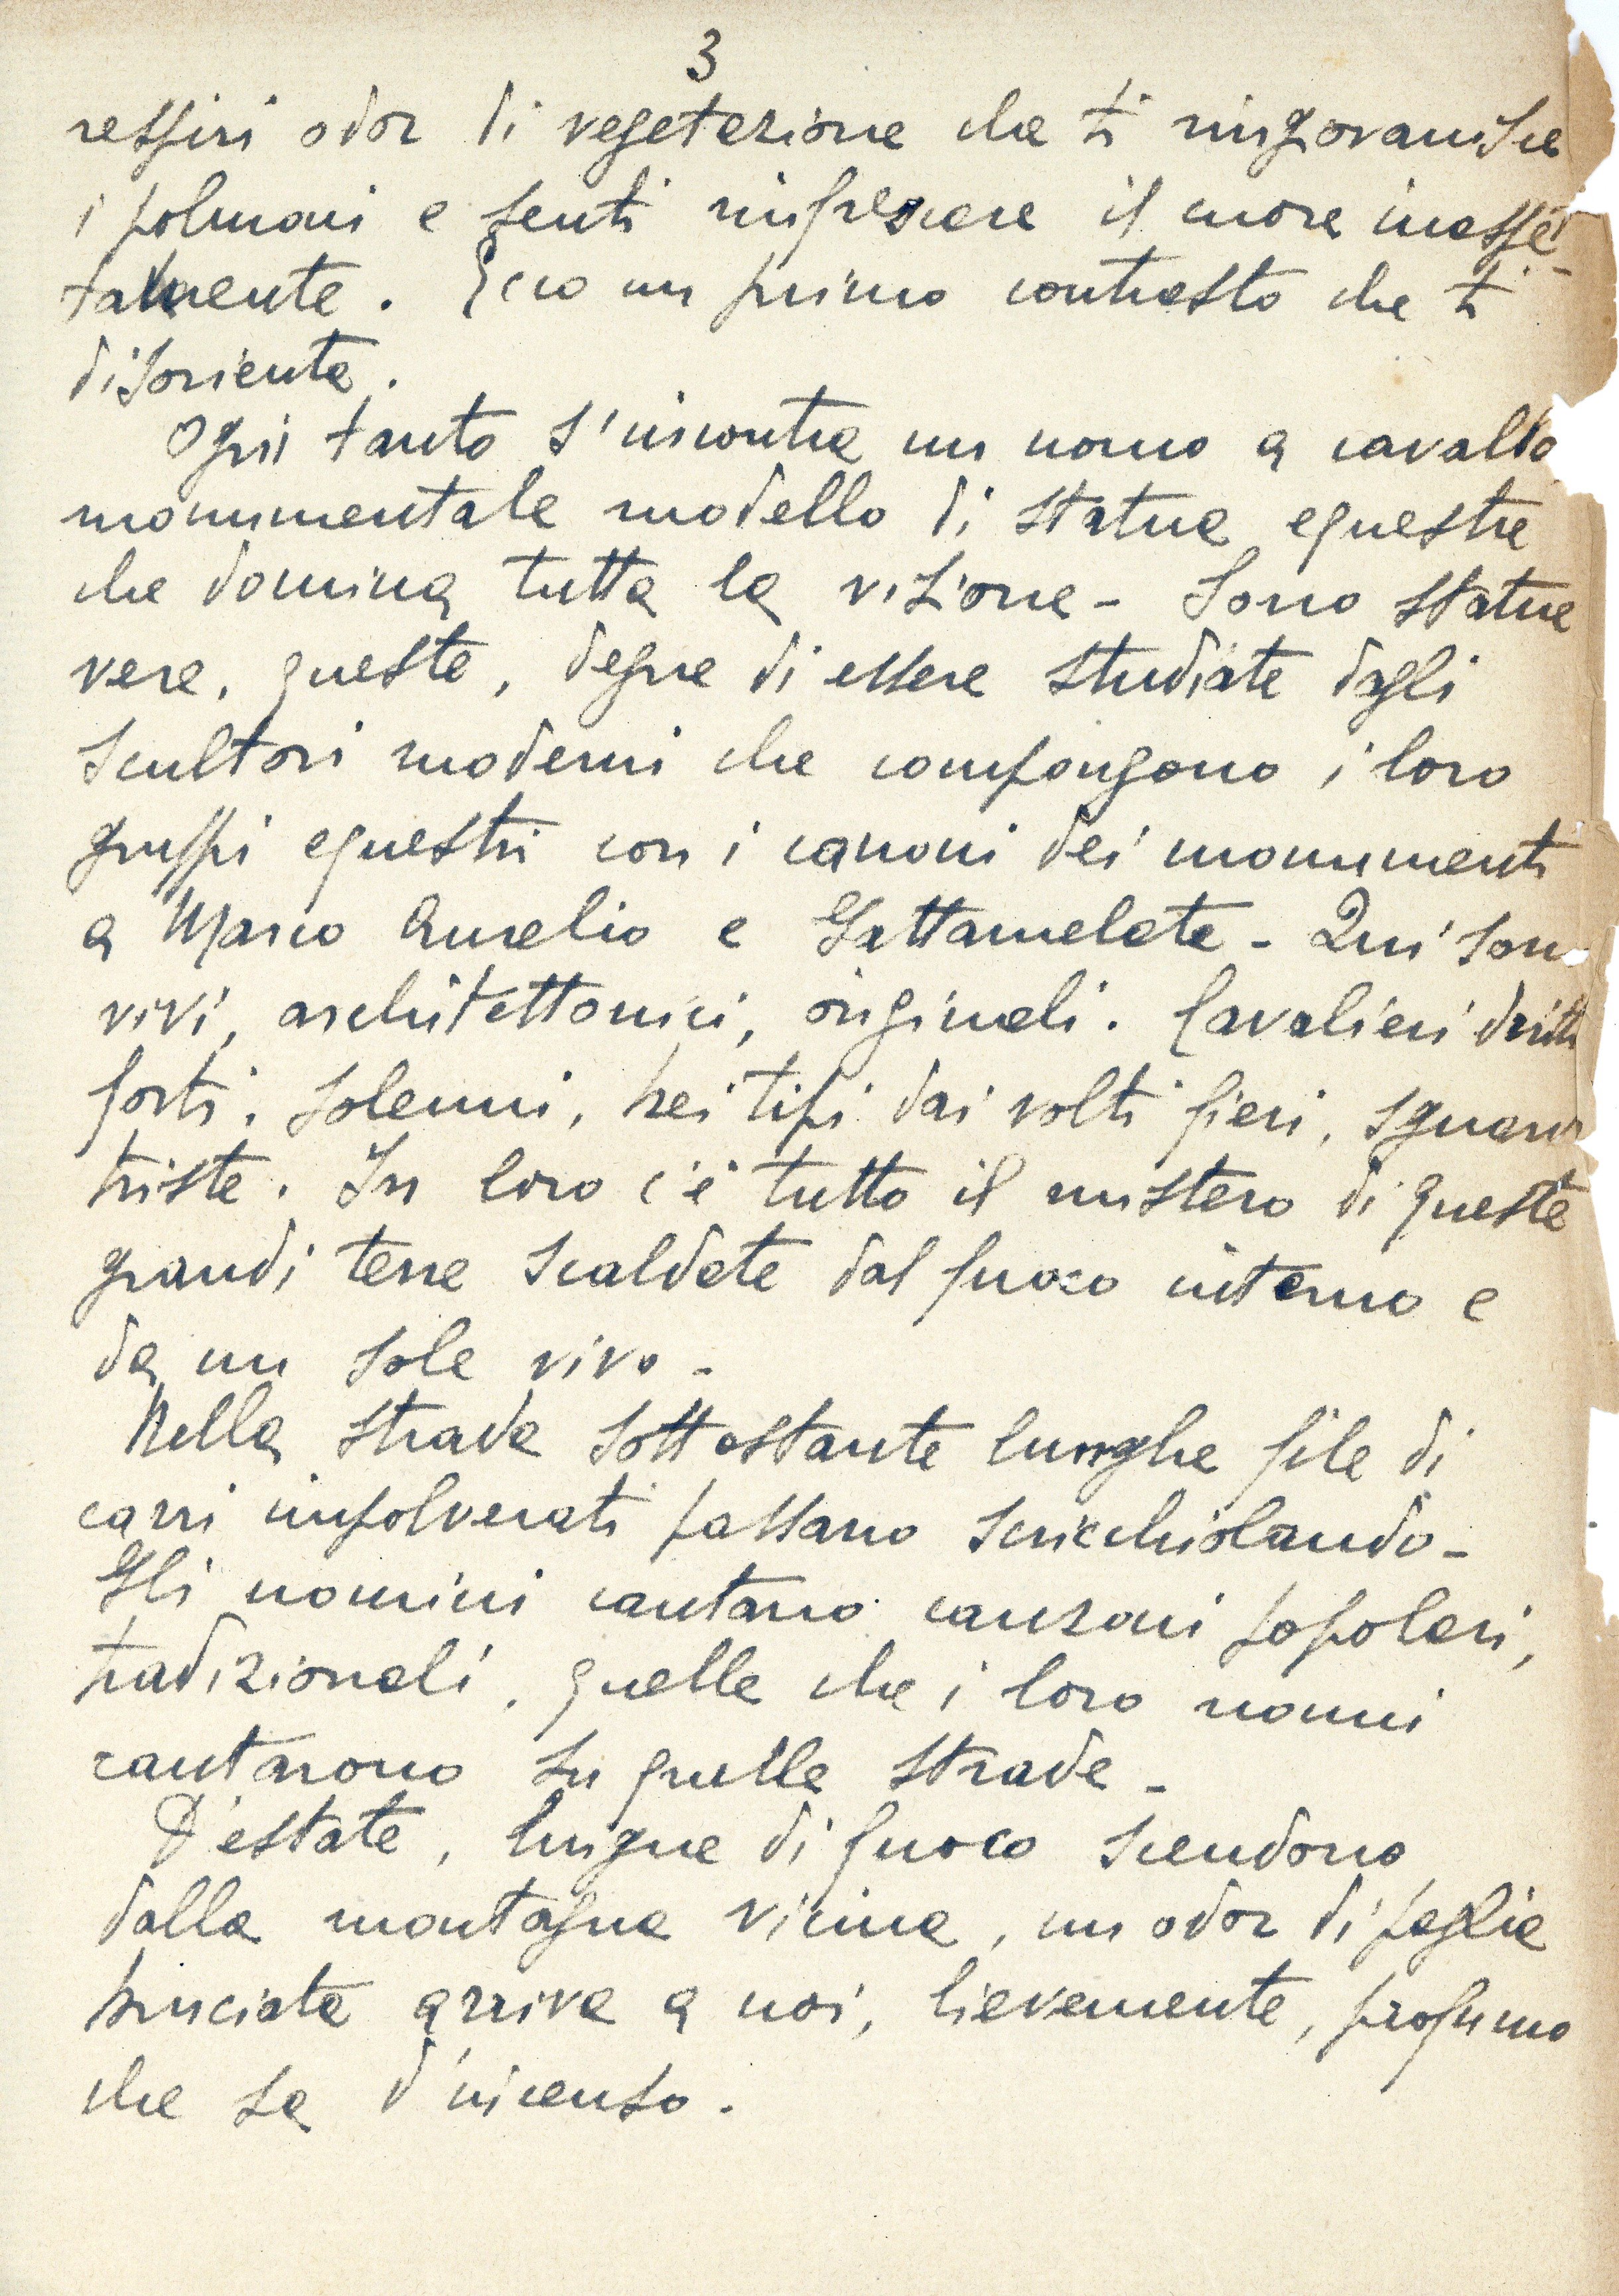 3
respiri odor di vegetazione che ti ringiovanisce
i polmoni e senti rinfrescare il cuore inaspet-
tatamente. Ecco un primo contrasto che ti
disorienta.
Ogni tanto s'incontra un uomo a cavallo
monumentale modello di statua equestre
che domina tutta la visione - Sono statue
vere, queste, degne di essere studiate dagli
scultori moderni che compongono i loro
gruppi equestri con i canoni dei monumenti
a Marco Aurelio e Gattamelata - Qui sono
vivi, architettonici, originali. Cavalieri dritti
forti, solenni, bei tipi dai volti fieri, sguardo
triste. In loro c'è tutto il mistero di queste
grandi terre scaldate dal fuoco interno e
da un sole vivo -
Nella strada sottostante lunghe file di
carri impolverati passano scricchiolando -
Gli uomini cantano canzoni popolari,
tradizionali, quelle che i loro nonni
cantarono su quelle strade -
D'estate, lingue di fuoco scendono
dalla montagna vicina, un odor di paglia
bruciata arriva a noi, lievemente, profumo
che sa d'incenso.